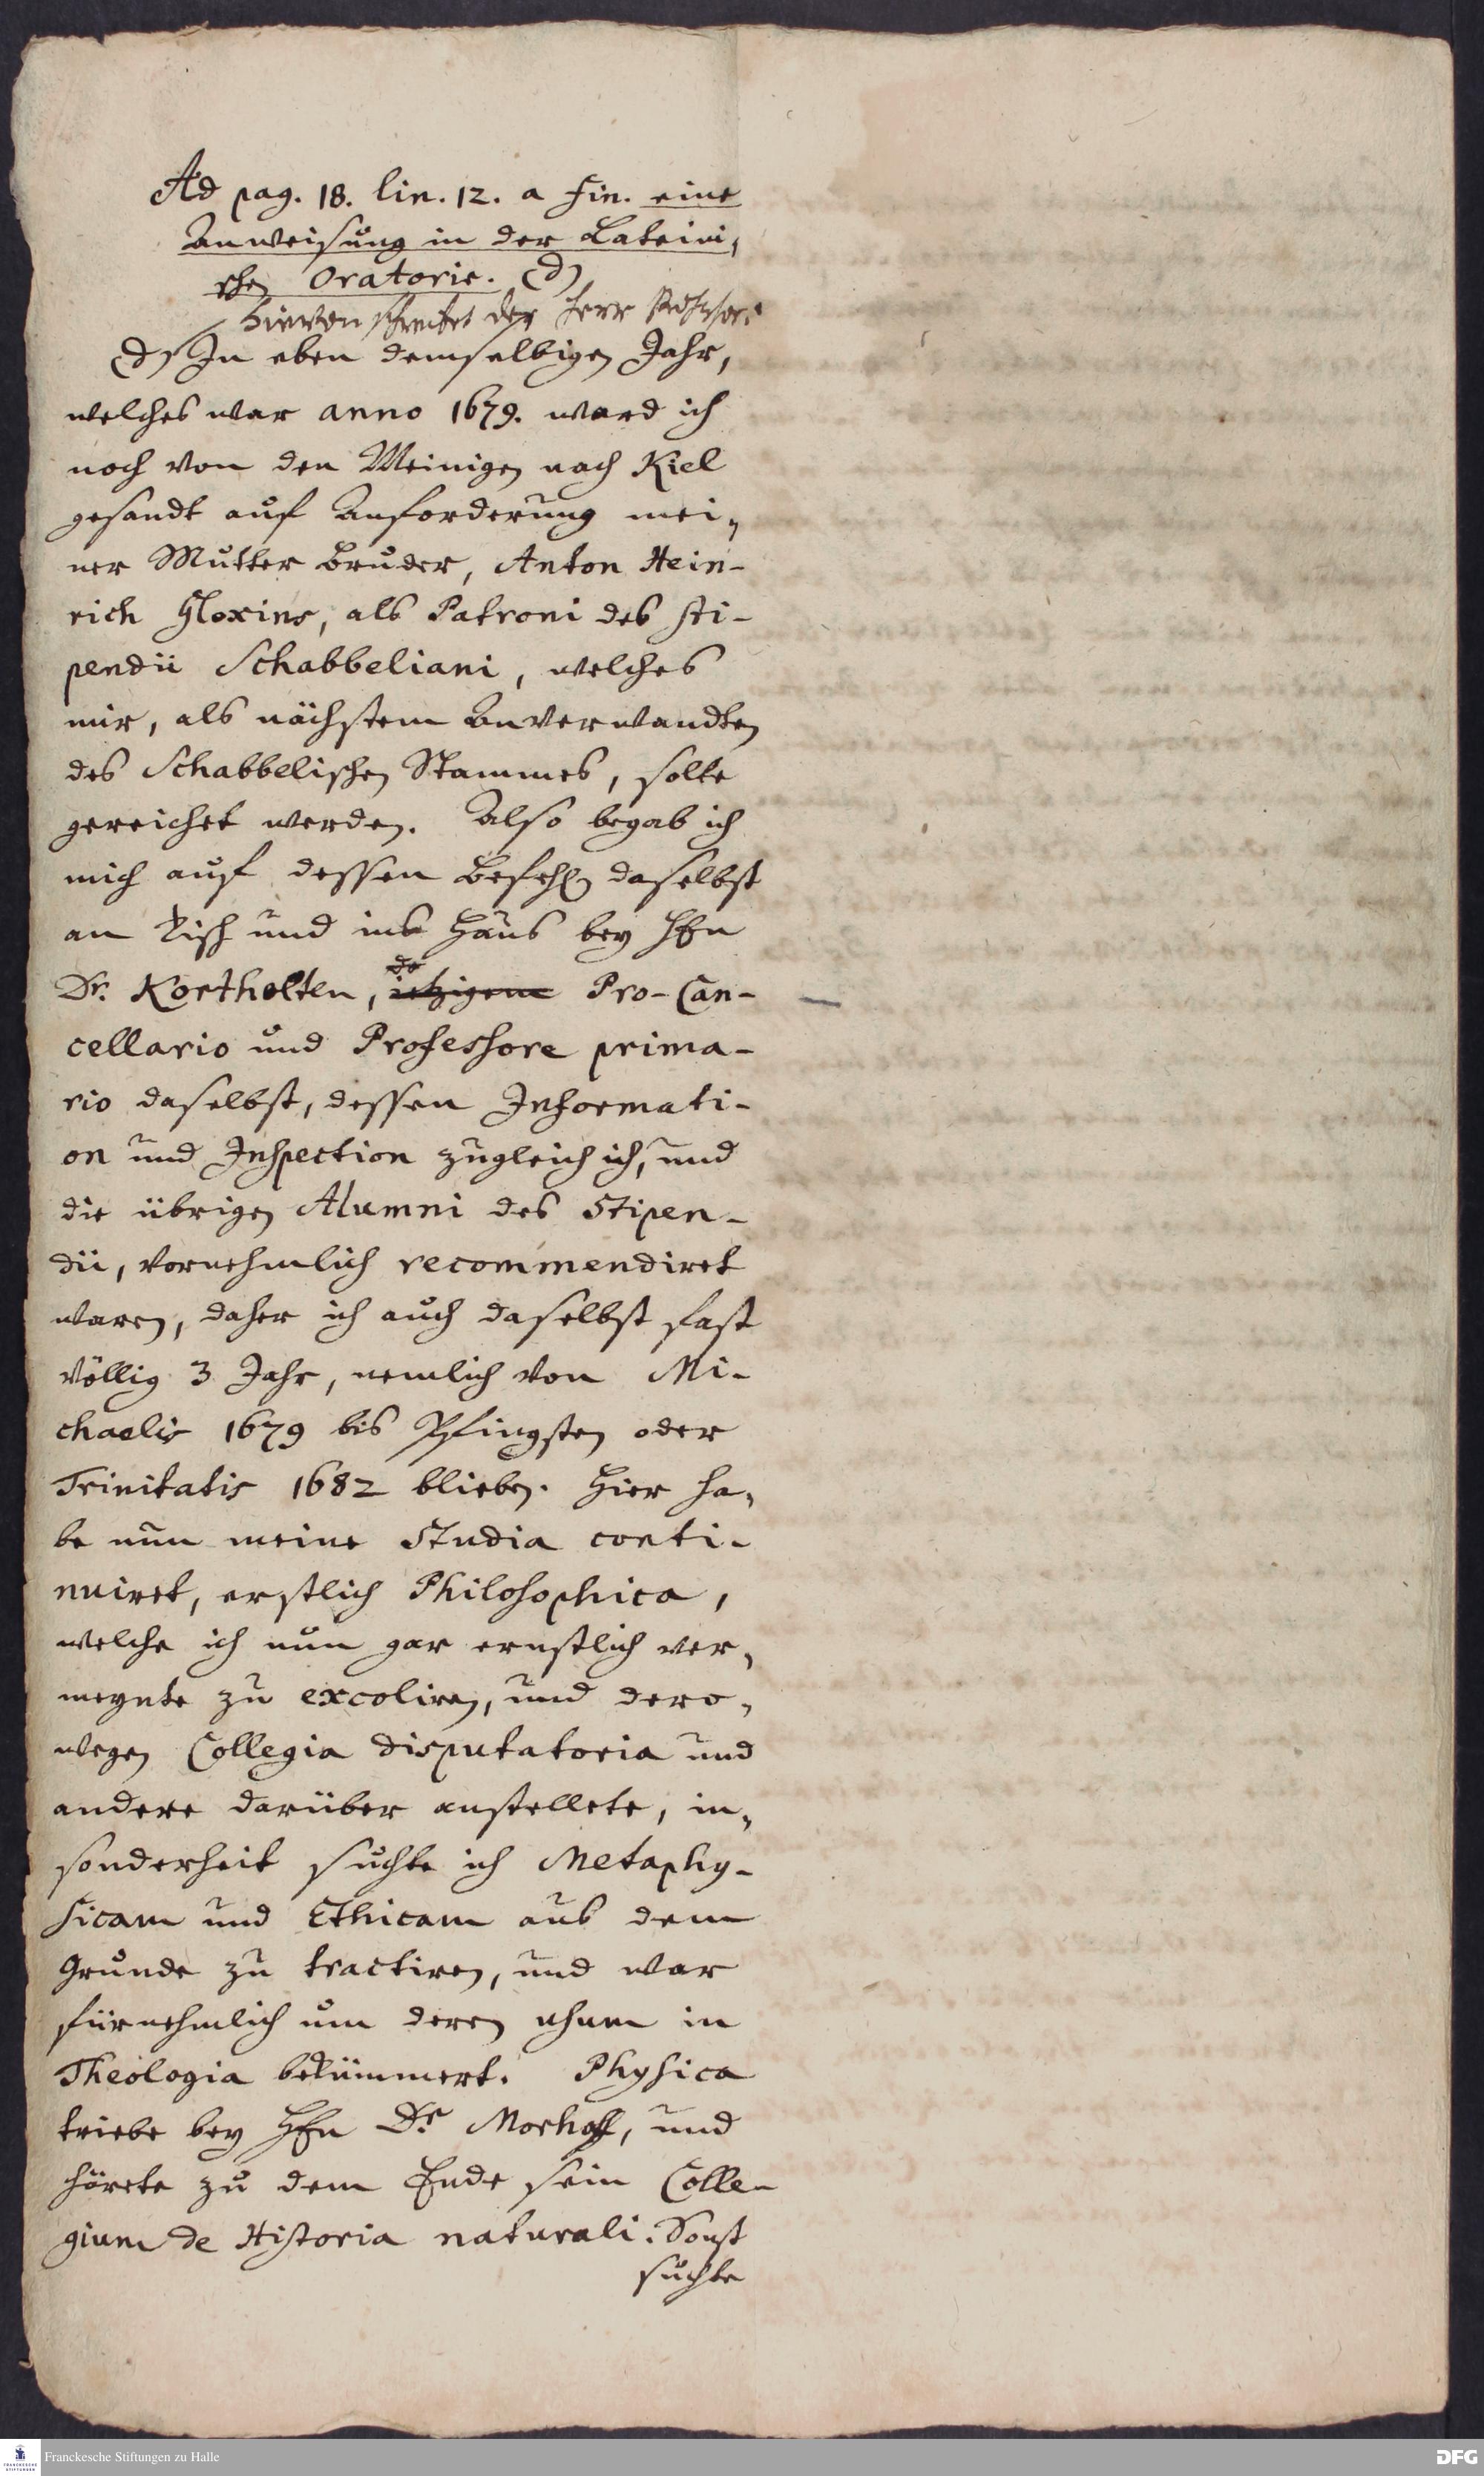 Ad pag. 18. lin. 12. a fin. eine
Anweisung in der Lateini,
schen Oratorie. (d)
hievon schreibet der Herr Professor:
(d) In eben demselbigen Jahr,
welches war anno 1679. ward ich
noch von den Meinigen nach Kiel
gesandt auf Anforderung mei,
ner Mutter Bruder, Anton Hein-
rich Gloxins, als Patroni des sti-
pendii Schabbeliani, welches
mir, als nächstem Anverwandten
des Schabbelischen Stammes, solte
gereichet werden. Also begab ich
mich auf dessen Befehl daselbst
an Tisch und ins Haus bey HEn
Dr. Kortholten, ietzigem Pro-Can-
cellario und Professore prima-
rio daselbst, dessen Informati-
on und Inspection zugleich ich, und
die übrigen Alumni des Stipen-
dii, vornehmlich recommendiret
waren, daher ich auch daselbst fast
völlig 3 Jahr, nemlich von Mi-
chaelis 1679 bis Pfingsten oder
Trinitatis 1682 blieben. Hier ha,
be nun meine Studia conti-
nuiret, erstlich Philosophica,
welche ich nun gar ernstlich ver,
meynte zu excoliren, und dero,
wegen Collegia disputatoria und
andere darüber anstellete, in,
sonderheit suchte ich Metaphy-
sicam und Ethicam aus dem
Grunde zu tractiren, und war
fürnehmlich um deren usum in
Theologia bekümmert. Physica
triebe bey HEn Dr Morhoff, und
hörete zu dem Ende sein Colle-
gium de Historia naturali. Sonst
suchte
Franckesche Stiftungen zu Halle
DFG